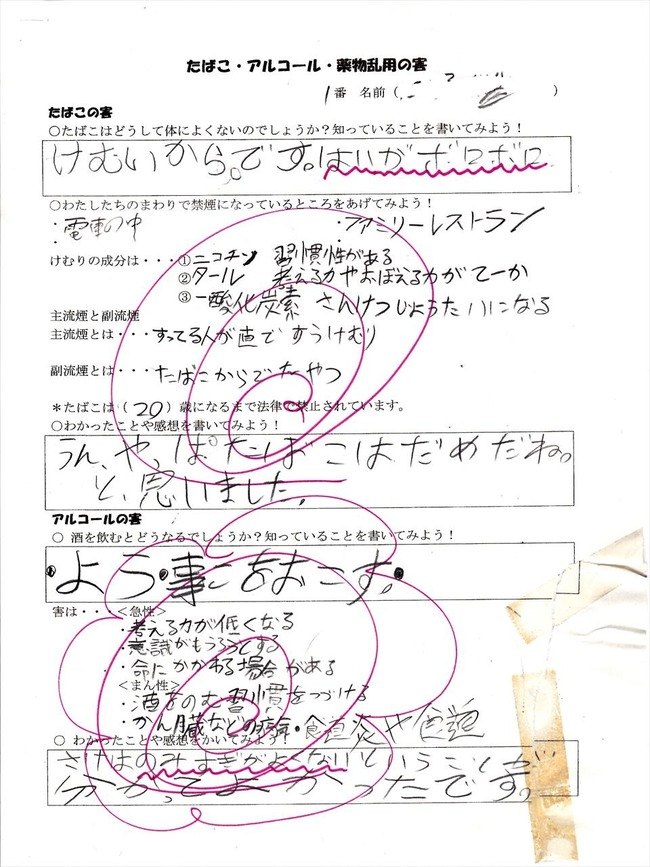 たばこ・アルコール・薬物乱用の害
1番 名前( )
たばこの害
○たばこはどうして体によくないのでしょうか?知っていることを書いてみよう!
けむいから。です。はいがボロボロ
○わたしたちのまわりで禁煙になっているところをあげてみよう!
・電車の中 ・ファミリーレストラン
けむりの成分は・・・①ニコチン 習慣性がある
②タール 考える力やおぼえる力がてーか
③一酸化炭素 さんけつじょうたいになる
主流煙と副流煙
主流煙とは・・・すってる人が直で すうけむり
副流煙とは・・・たばこからでたやつ
*たばこは(20)歳になるまで法律で禁止されています。
○わかったことや感想を書いてみよう!
うん、や、ぱたばこはだめだね。
と、思いました。
アルコールの害
○ 酒を飲むとどうなるでしょうか?知っていることを書いてみよう!
・よう・事こをおこす。
害は・・ <急性>
・考える力が低くなる
・意識がもうろうとする
・命にかかわる場合がある
<まん性>
・酒をのむ習慣をつづける
・かん臓などの病病・食道炎や食道
○ わかったことや感想をかいてみよう!
さけはのみすぎがよくないということが
分かってよかったです。